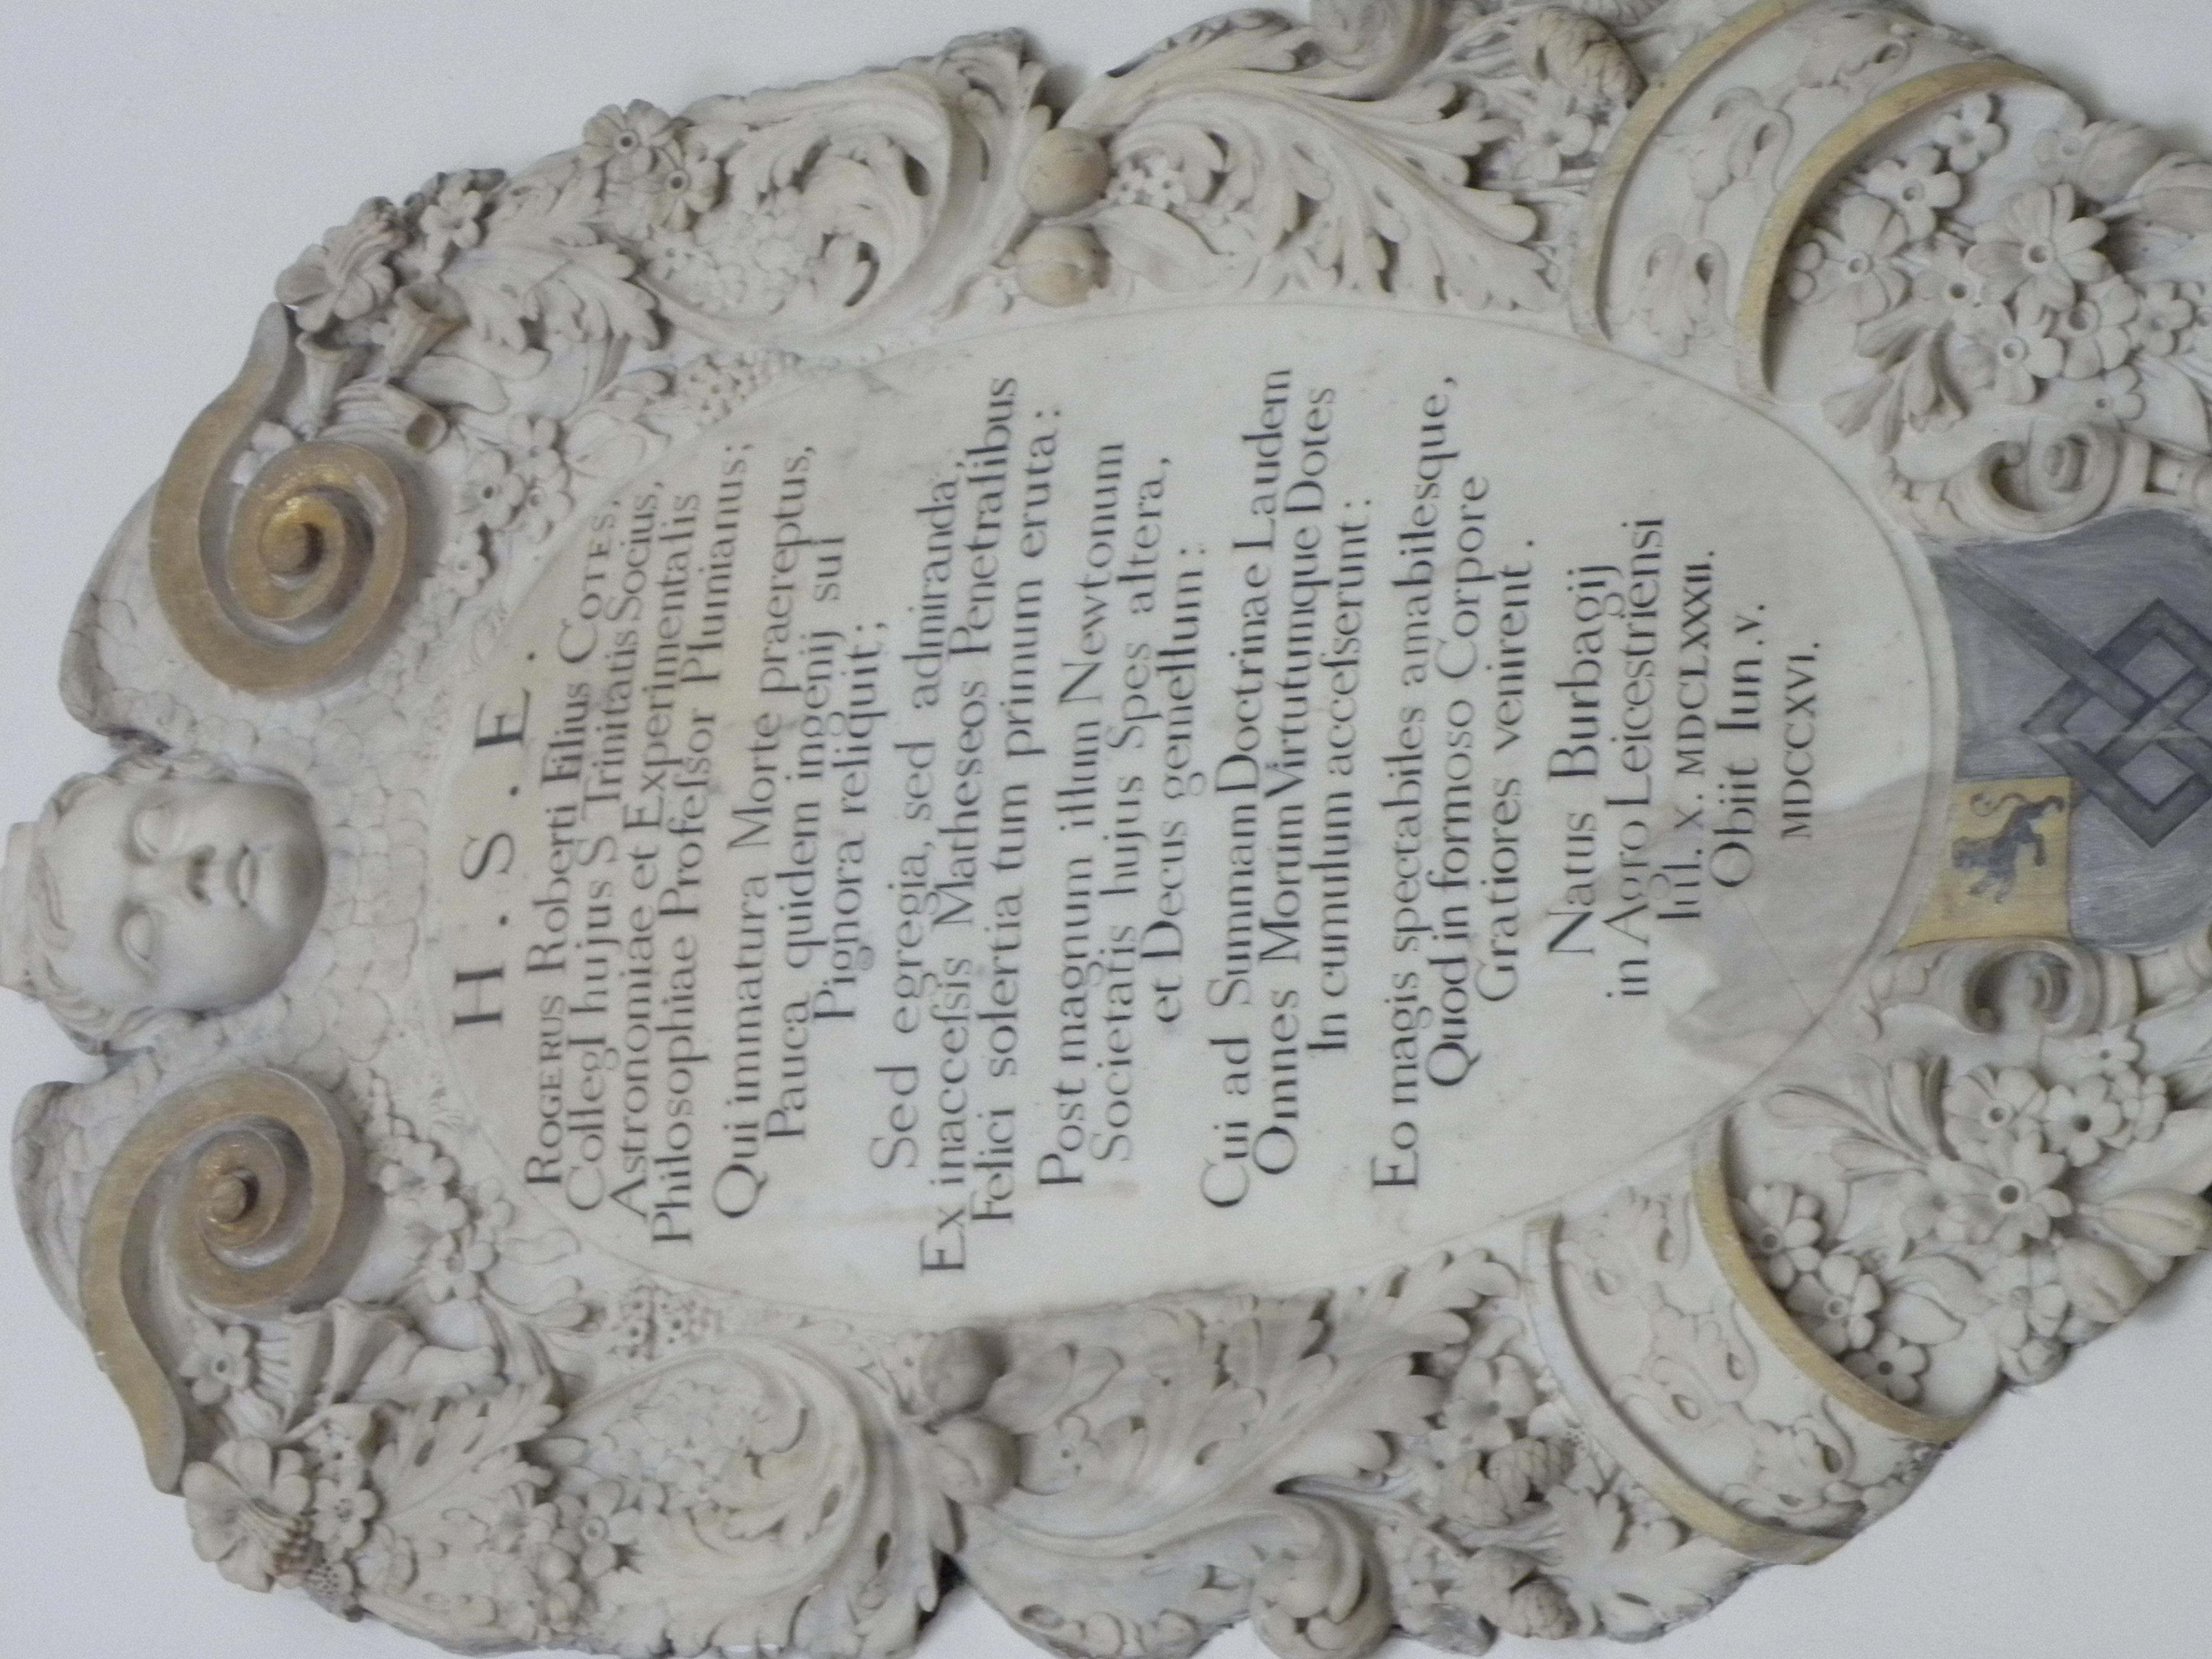 H . S . E .
ROGERUS Roberti Filius COTES,
CollegI hujus S Trinitatis Socius,
Astronomiae et Experimentalis
Philosophiae Profeſsor Plumianus;
Qui immatura Morte praereptus,
Pauca quidem ingenij sui
Pignora reliquit;
Sed egregia, sed admiranda,
Ex inacceſsis Matheseos Penetralibus
Felici solertia tum primum eruta:
Post magnum illum Newtonum
Societatis hujus Spes altera,
et Decus gemellum:
Cui ad Summam Doctrinae Laudem
Omnes Morum Virtutumque Dotes
In cumulum acceſserunt:
Eo magis spectabiles amabilesque,
Quod in formoso Corpore
Gratiores venirent.
Natus Burbagij
in Agro Leicestriensi
Iul. X. MDCLXXXII.
Obiit Iun. V.
MDCCXVI.